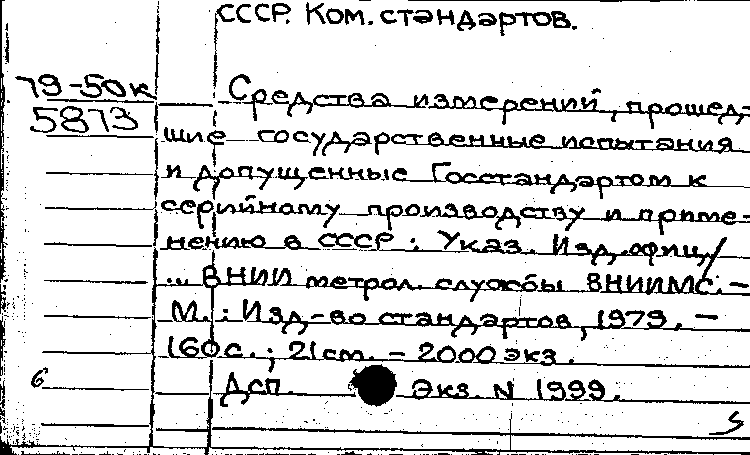 СССР. Ком. стандартов.
79-50к
5873
Средства измерений, прошед-
шие государственные испытания
и допущенные Госстандартом к
серийному производству и приме-
нению в СССР : Указ. Изд. офиц./
... ВНИИ метрол. службы ВНИИМС. –
М. : Изд-во стандартов, 1979. –
160 с. ; 21 cm. – 2000 экз.
6
Дсп. Экз. N 1999.